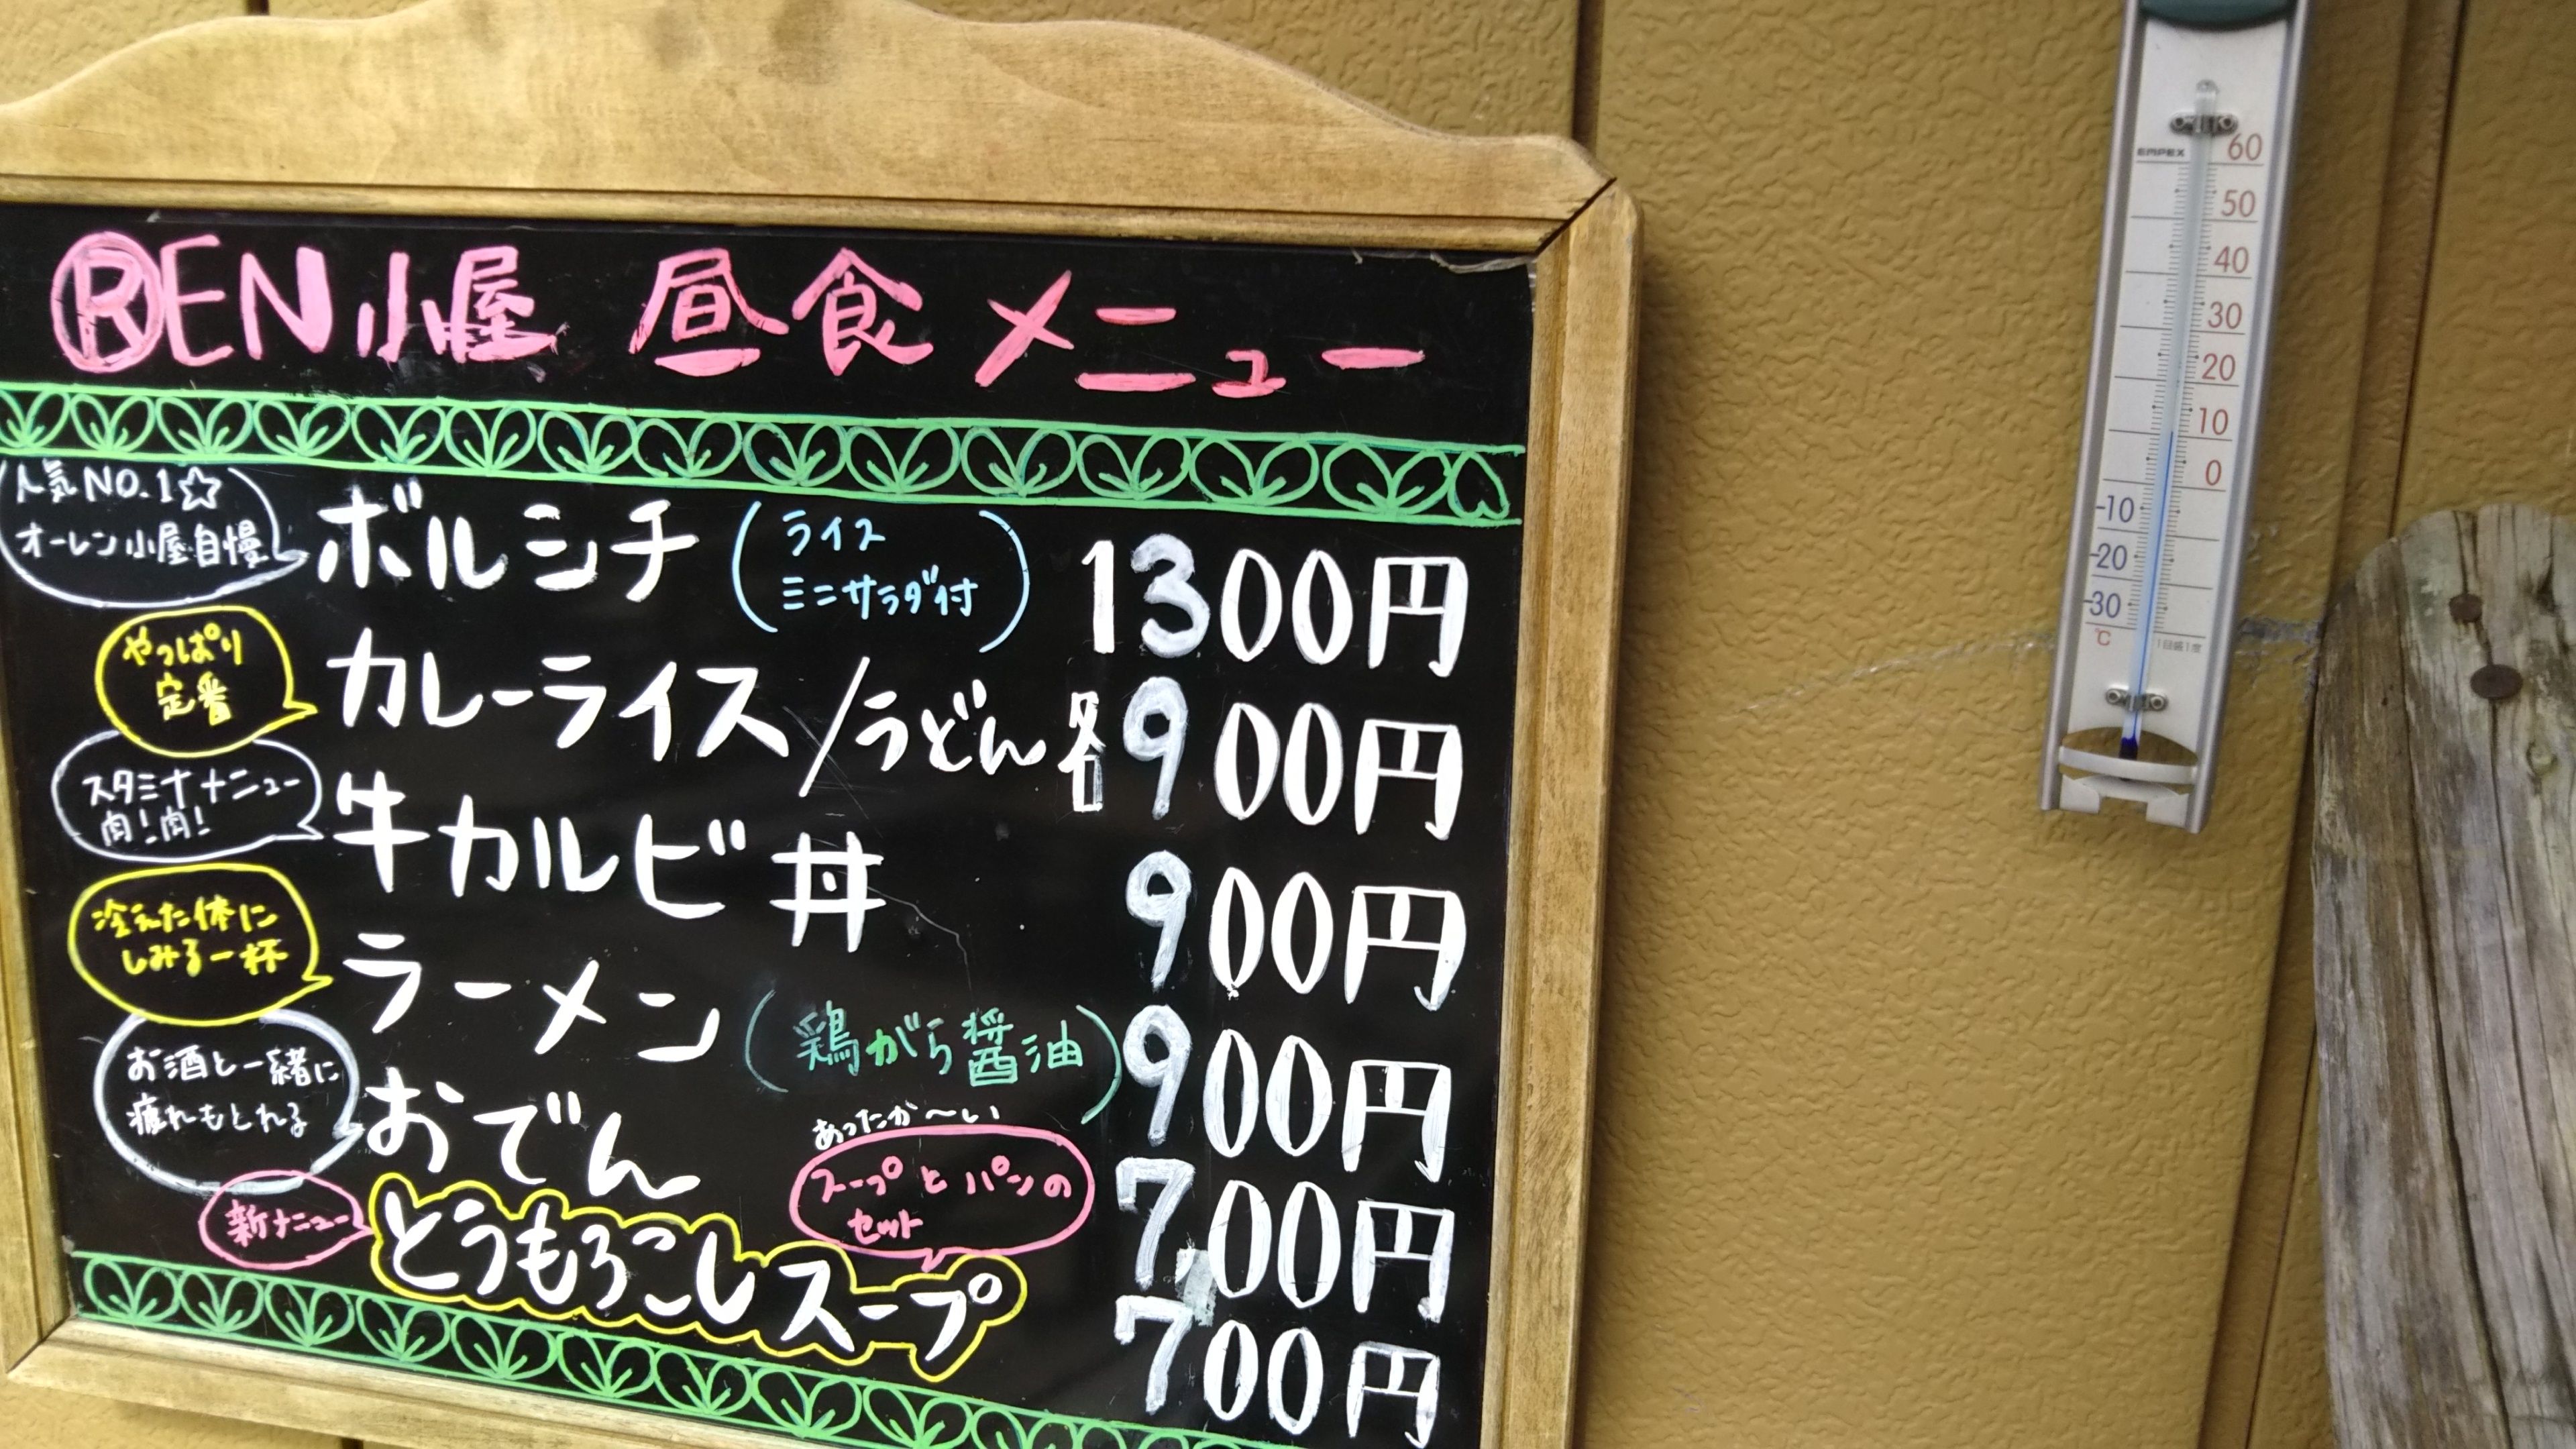 ⓇEN小屋 昼食メニュー
人気NO.1☆
オーレン小屋自慢
ボルシチ
(ライス
ミニサラダ付)
1300円
やっぱり
定番
カレーライス/うどん各900円
スタミナメニュー
肉!肉!
牛カルビ丼 900円
冷えた体に
しみる一杯
ラーメン(鶏がら醤油)900円
お酒と一緒に
疲れもとれる
おでん 700円
あったか〜い
スープとパンの
セット
新メニュー
とうもろこしスープ 700円
EMPEX
60
50
40
30
20
10
0
-10
-20
-30
℃
1目盛1度